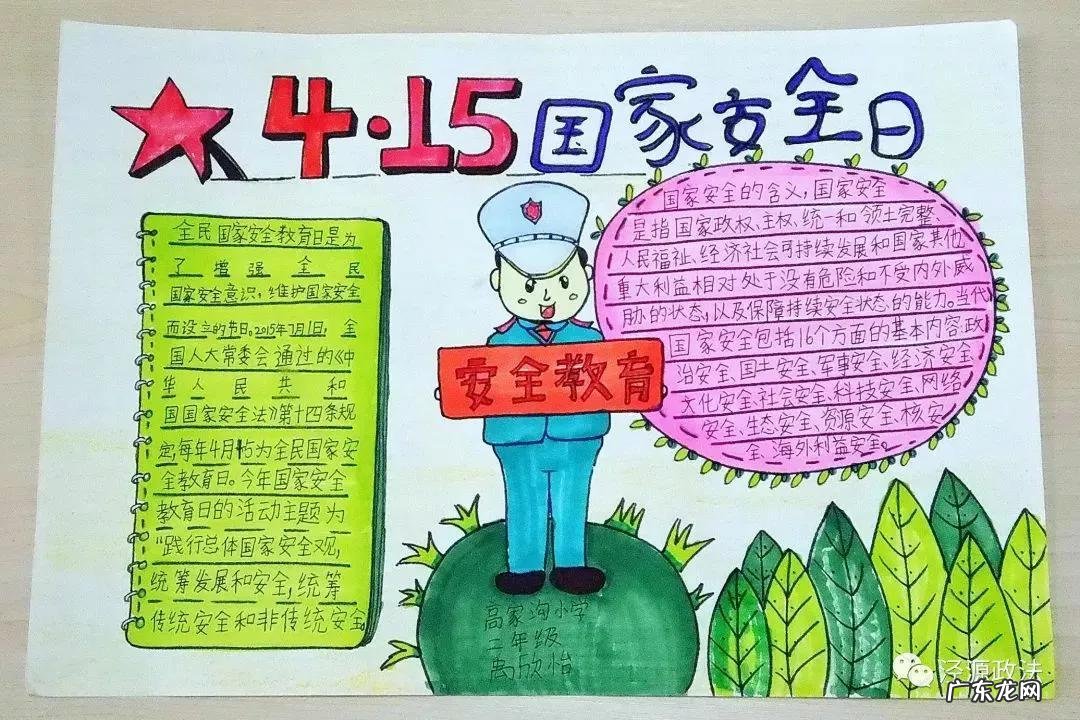 4·15国家安全日
全民国家安全教育日是为
了增强全民
国家安全意识，维护国家安全
而设立的节日。2015年7月1日，全
国人大常委会通过的《中
华人民共和
国国家安全法》第十四条规
定，每年4月15为全民国家安
全教育日。今年国家安全
教育日的活动主题为
“践行总体国家安全观，
统筹发展和安全，统筹
传统安全和非传统安全
安全教育
国家安全的含义，国家安全
是指国家政权、主权、统一和领土完整、
人民福祉、经济社会可持续发展和国家其他
重大利益相对处于没有危险和不受内外威
胁的状态，以及保障持续安全状态的能力。当代
国家安全包括16个方面的基本内容，政
治安全、国土安全、军事安全、经济安全
文化安全、社会安全、科技安全、网络
安全、生态安全、资源安全、核安
全、海外利益安全。
高家沟小学
二年级
禹欣怡
泾源政法
广东龙网